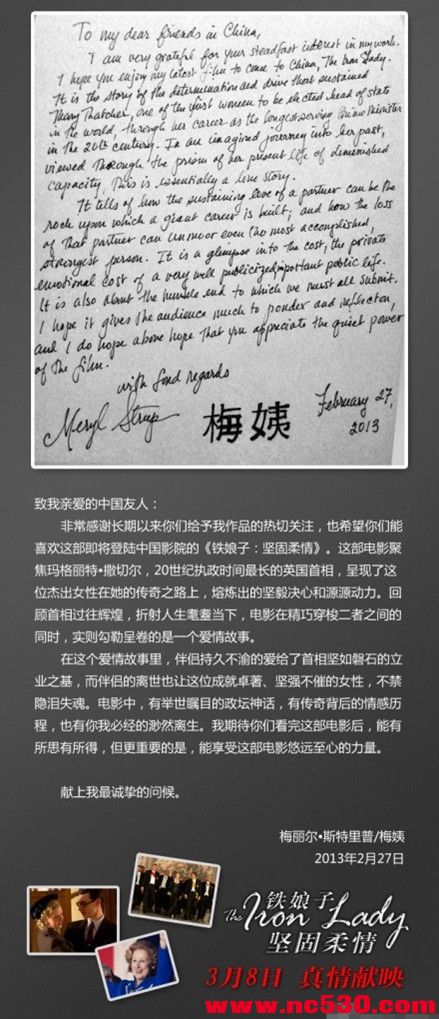 To my dear friends in China,
I am very grateful for your steadfast interest in my work.
I hope you enjoy my latest film to come to China, The Iron Lady.
It is the story of the determination and drive that sustained
Margaret Thatcher, one of the first women to be elected head of state
in the world, through her career as the longest serving Prime Minister
in the 20th century. In an imagined journey into her past,
viewed through the prism of her present life of diminished
capacity, this is essentially a love story.
It tells of how the sustaining love of a partner can be the
rock upon which a giant career is built, and how the loss
of that partner can unmoor even the most accomplished,
strongest person. It is a glimpse into the cost, the private
emotional cost of a very well publicized important public life.
It is also about the humble end to which we must all submit.
I hope it gives the audience much to ponder and reflect on,
and I do hope above hope that you appreciate the quiet power
of the film.
with fond regards
Meryl Streep
梅姨
February 27,
2013
致我亲爱的中国友人：
非常感谢长期以来你们给予我作品的热切关注，也希望你们能
喜欢这部即将登陆中国影院的《铁娘子：坚固柔情》。这部电影聚
焦玛格丽特•撒切尔，20世纪执政时间最长的英国首相，呈现了这
位杰出女性在她的传奇之路上，熔炼出的坚毅决心和源源动力。回
顾首相过往辉煌，折射人生耄耋当下，电影在精巧穿梭二者之间的
同时，实则勾勒呈卷的是一个爱情故事。
在这个爱情故事里，伴侣持久不渝的爱给了首相坚如磐石的立
业之基，而伴侣的离世也让这位成就卓著、坚强不催的女性，不禁
隐泪失魂。电影中，有举世瞩目的政坛神话，有传奇背后的情感历
程，也有你我必经的渺然离生。我期待你们看完这部电影后，能有
所思有所得，但更重要的是，能享受这部电影悠远至心的力量。
献上我最诚挚的问候。
梅丽尔•斯特里普/梅姨
2013年2月27日
铁娘子
The Iron Lady
坚固柔情
3月8日 真情献映
www.nc530.com